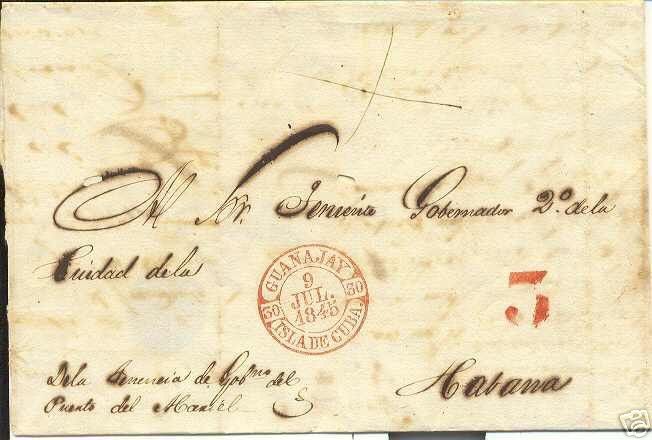 Al Sor. Teniente Gobernador 2º. de la
Ciudad de la
GUANAJAY
9
JUL.
1845
30 30
ISLA DE CUBA.
5
Habana
De la Tenencia de Gobno. del
Puerto del Mariél